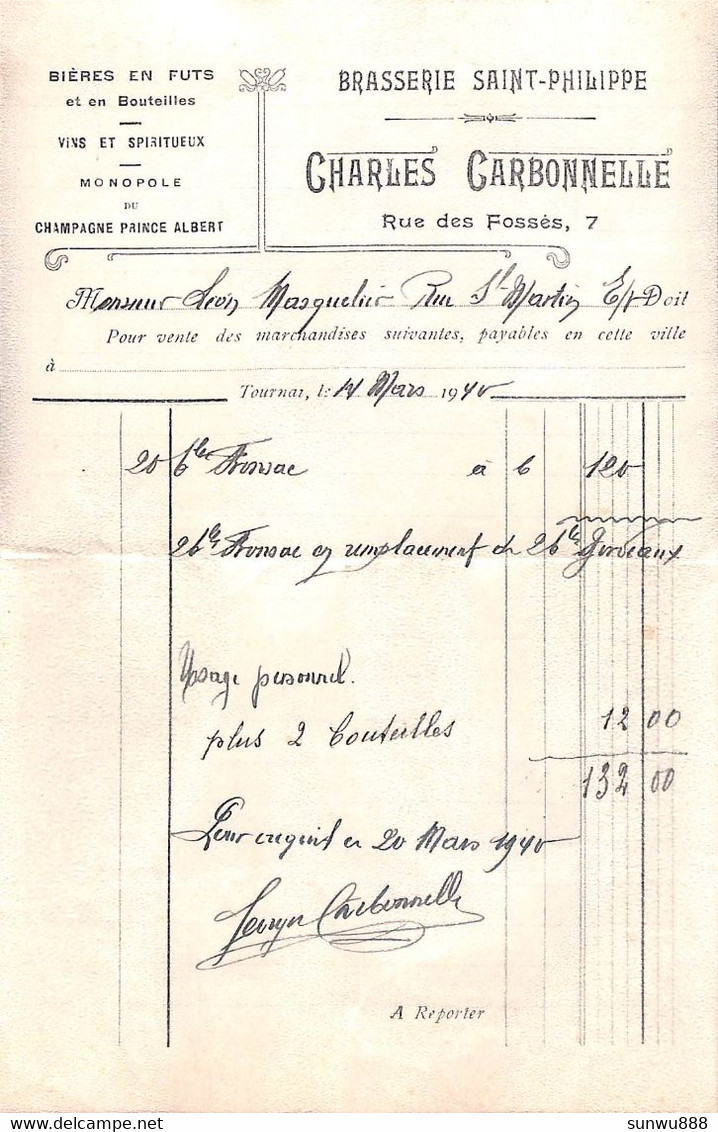 BIÈRES EN FUTS
et en Bouteilles
VINS ET SPIRITUEUX
MONOPOLE
DU
CHAMPAGNE PRINCE ALBERT
BRASSERIE SAINT-PHILIPPE
CHARLES CARBONNELLE
Rue des Fossés, 7
Monsieur Léon Masquelier Rue St Martin E/V Doit
Pour vente des marchandises suivantes, payables en cette ville
à
Tournai, le 14 Mars 1940
20 bles Fronsac à 6 120
2 bles Fronsac en remplacement de 2 bles Bordeaux
Usage personnel.
plus 2 bouteilles 12 00
132 00
Pour acquit le 20 Mars 1940
Carbonnelle
A Reporter
sunwu888